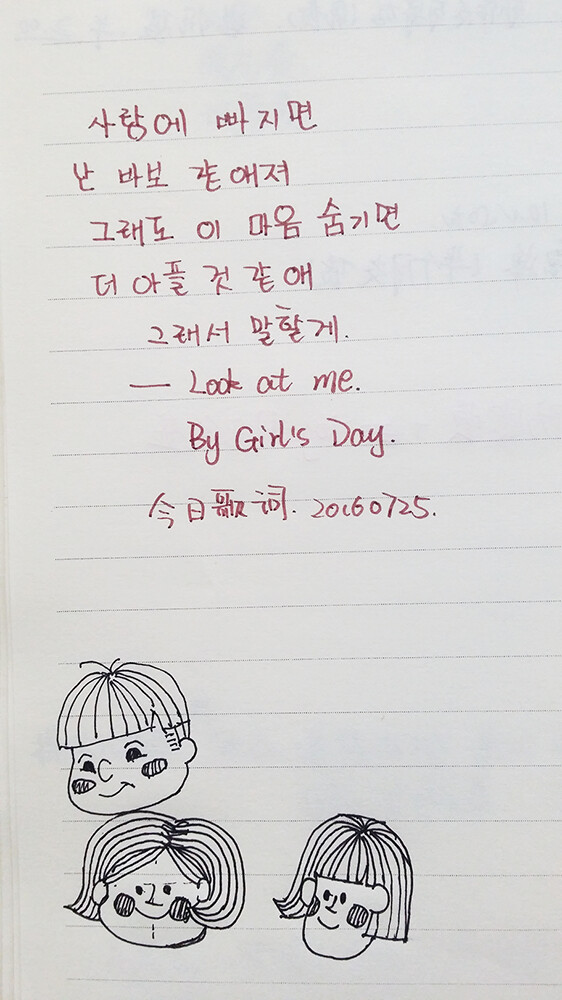 사랑에 빠지면
난 바보 같애져
그래도 이 마음 숨기면
더 아플 것 같애
그래서 말할게.
— Look at me.
By Girl's Day.
今日歌词. 20160725.